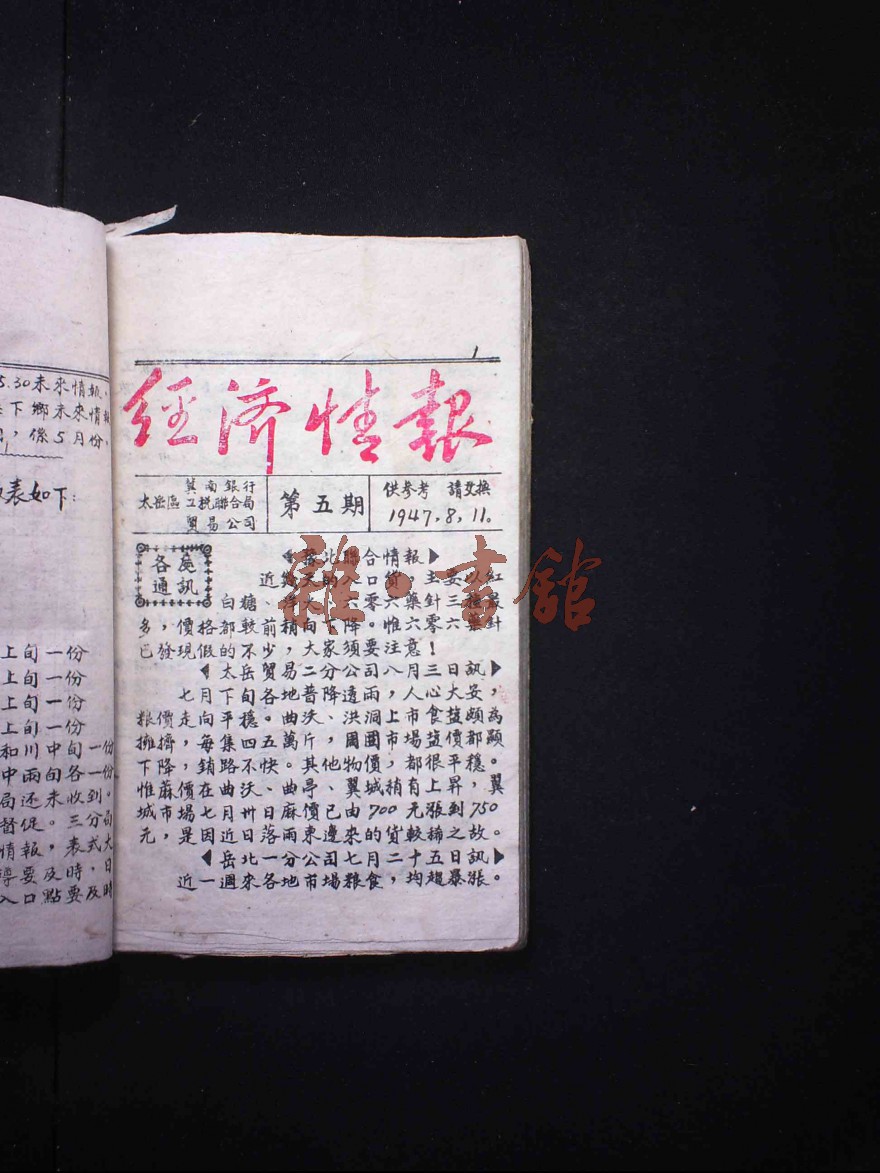 5.30未來情報,
下鄉未來情報
,係5月份,
表如下:
上旬一份
上旬一份
上旬一份
上旬一份
和川中旬一份
中兩旬各一份
局还未收到。
督促。三分局
情報,表式大
導要及時,日
入口點要及時
1
經济情報
冀南銀行
太岳區工稅聯合局
貿易公司
第五期
供參考 請交換
1947,8,11。
各處
通訊
聯合情報
近幾天的入口貨,主要以紅
白糖、六零六藥針三種最
多,價格都較前稍向下降。惟六零六藥針
已發現假的不少,大家須要注意!
太岳貿易二分公司八月三日訊
七月下旬各地普降透雨,人心大安,
粮價走向平穩。曲沃、洪洞上市食盐頗為
擁擠,每集四五萬斤,周圍市場盐價都顯
下降,銷路不快。其他物價,都很平穩。
惟蔴價在曲沃、曲亭、翼城稍有上昇,翼
城市場七月卅日麻價已由700元漲到750
元,是因近日落雨東邊來的貨較稀之故。
岳北一分公司七月二十五日訊
近一週來各地市場粮食,均趨暴漲。
雜·書館